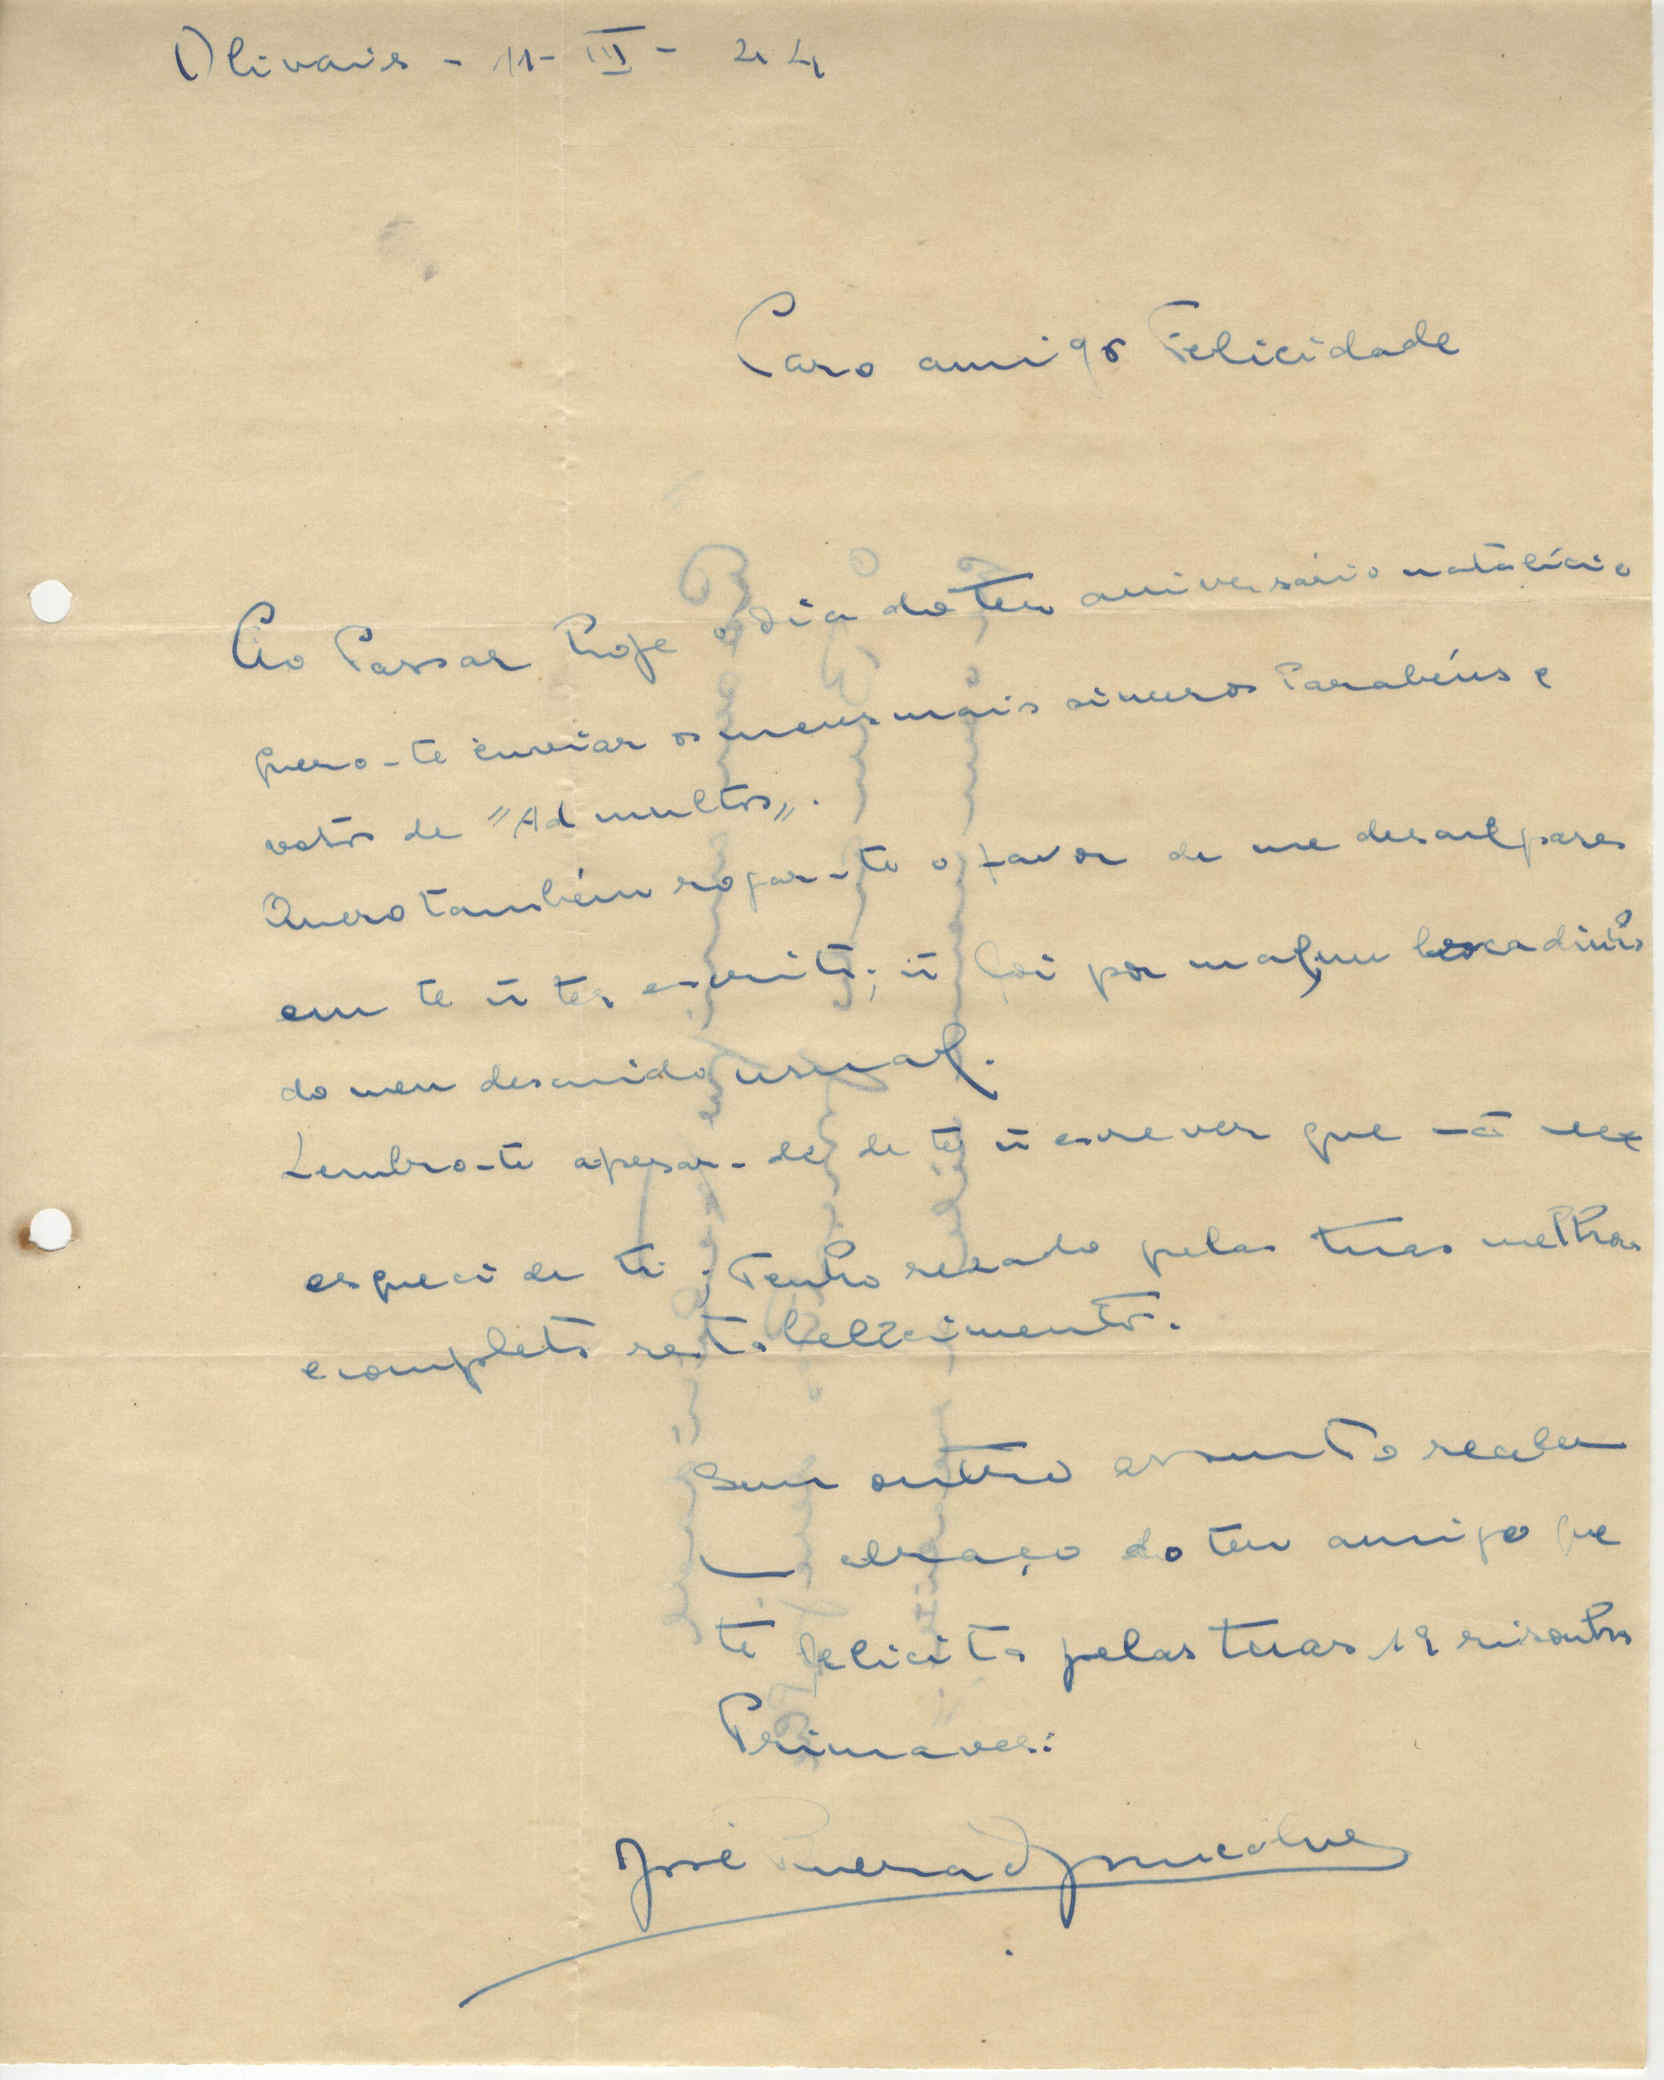 Olivais - 11 - III - 44
Caro amigo Felicidade
Ao Passar hoje o dia do teu aniversário natalício
quero-te enviar os meus mais sinceros Parabéns e
votos de "Ad multos".
Quero também rogar-te o favor de me desculpares
em te ñ ter escrito; ñ foi por mal, um bocadinho
do meu descuido usual.
Lembro-te apesar-de de te ñ escrever que ñ me
esqueci de ti; Tenho rezado pelas tuas melhoras
e completo restabelecimento.
Sem outro assunto recebe
um abraço do teu amigo que
te felicita pelas tuas 19 risonhas
Primaveras:
José